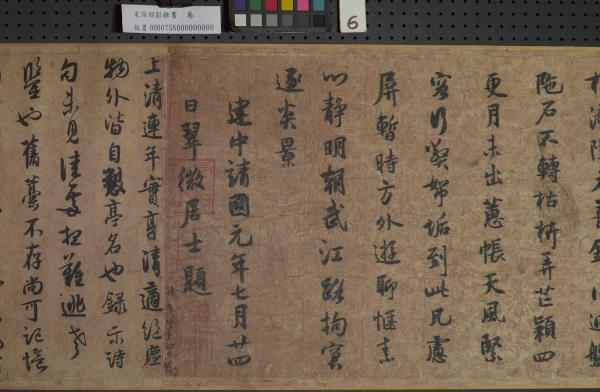 宋薛紹彭雜書 卷
故書000075N000000000
6
陁石不轉枯枿弄芒穎四
更月未出蕙帳天風緊
垢到此凡慮
屏暫時方外遊聊愜素
心靜明朝武江路拘窘
逐炎景
建中靖國元年七月廿四
日翠微居士題
上清連年實享清適絕塵
物外皆自製亭名也錄示詩
句未見佳處難逃老
鑒也舊藁不存尚可記憶